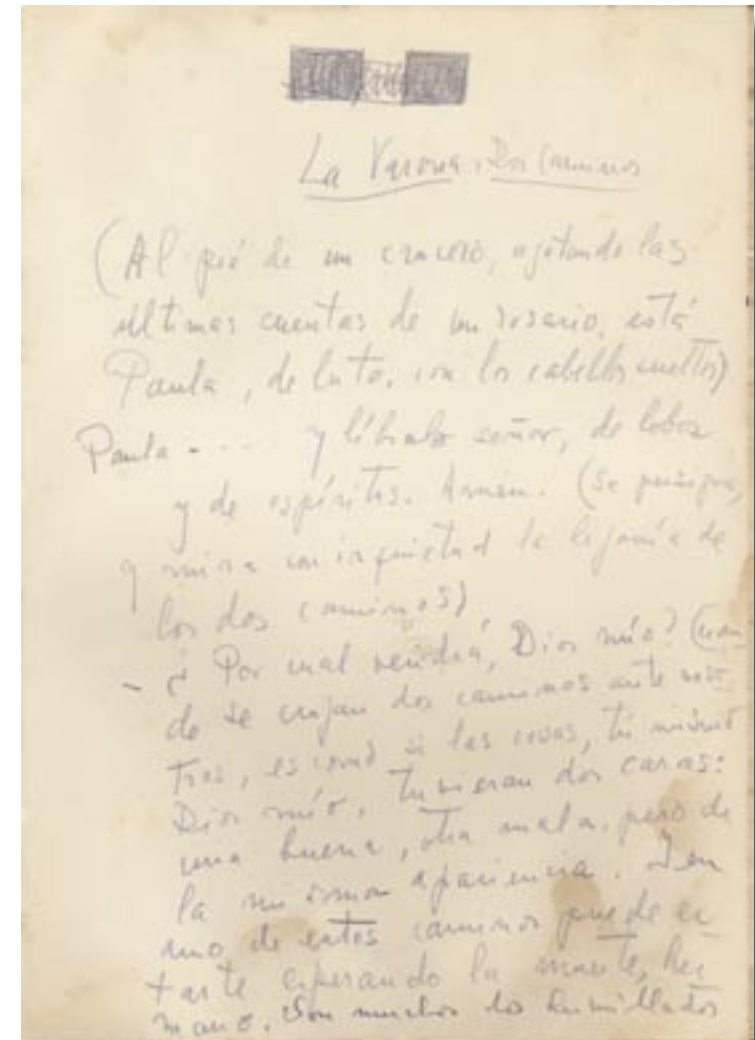 La Varona. Dos Caminos
(Al pié de un crucero, agotando las
últimas cuentas de un rosario, está
Paula, de luto, con los cabellos sueltos)
Paula - . . . . y líbralo señor, de lobos
y de espíritus. Amén. (Se persigna,
y mira con inquietud la lejanía de
los dos caminos)
- ¿Por cual vendrá, Dios mío? Cuan-
do se crujan dos caminos ante noso
tros, es como si las cosas, tú mismo
Dios mío, tuvieran dos caras:
una buena, otra mala, pero de
la misma apariencia. Y en
uno de estos caminos puede es
tarte esperando la muerte, her
mano. Son muchos los humillados